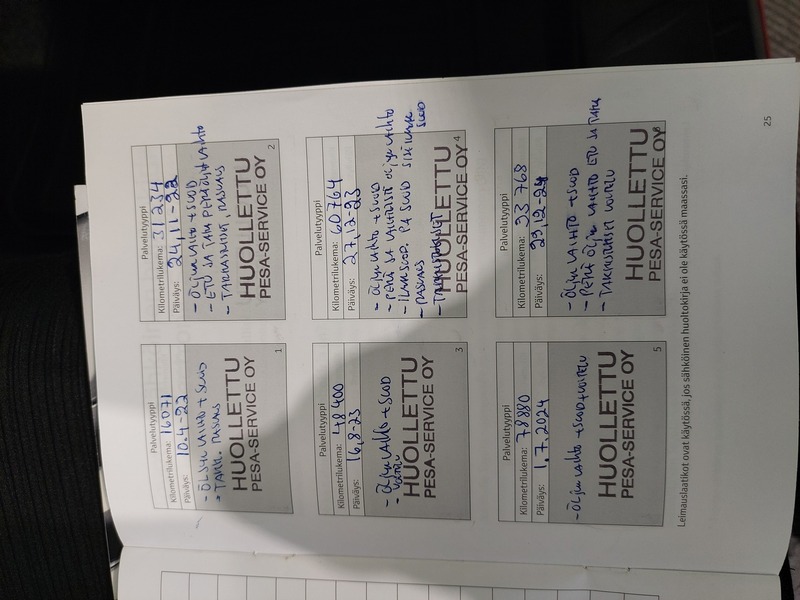 Palvelutyyppi
Kilometrilukema: 16071
Päiväys: 10.4-22
- ÖLJYN VAIHTO + SUOD
- TARK. RASVAUS
HUOLLETTU
PESA-SERVICE OY
1
Palvelutyyppi
Kilometrilukema: 31 234
Päiväys: 24.11-22
- ÖLJYN VAIHTO + SUOD
- ETU JA TAKA PERÄÖLJYT VAIHTO
- TARKASTUKSET, RASVAUS
HUOLLETTU
PESA-SERVICE OY
2
Palvelutyyppi
Kilometrilukema: 48 400
Päiväys: 16.8-23
- Öljyn VAIHTO + SUOD
HUOLLETTU
PESA-SERVICE OY
3
Palvelutyyppi
Kilometrilukema: 60 764
Päiväys: 27.12-23
- Öljyn VAIHTO + SUOD
- PERÄ JA VAIHTEISTO öljyn VAIHTO
- ILMANSUOD. PA SUOD SISÄILMA SUOD
- RASVAUS
- TARKASTUKSET
HUOLLETTU
PESA-SERVICE OY
4
Palvelutyyppi
Kilometrilukema: 78880
Päiväys: 1.7.2024
- Öljyn vaihto + SUOD + VOITELU
HUOLLETTU
PESA-SERVICE OY
5
Palvelutyyppi
Kilometrilukema: 93 768
Päiväys: 29.12-24
- ÖLJYN VAIHTO + SUOD
- PERÄ ÖLJYN VAIHTO ETU JA TAKA
- TARKASTUKSET VOITELU
HUOLLETTU
PESA-SERVICE OY
Leimauslaatikot ovat käytössä, jos sähköinen huoltokirja ei ole käytössä maassasi.
25